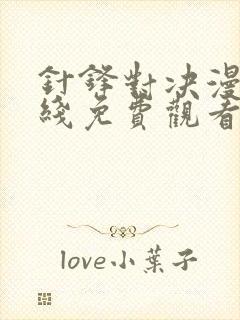 針鋒對決漫
綫免費觀看
love小葉子